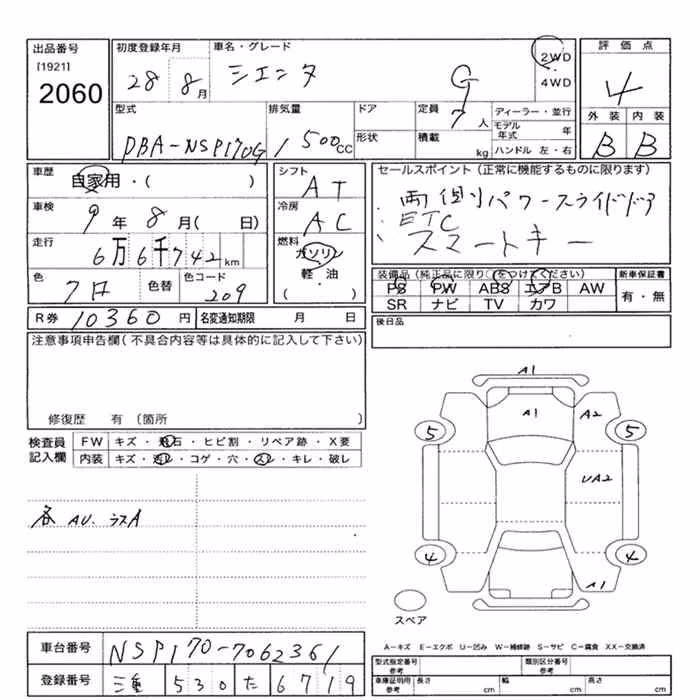 出品番号 初度登録年月 車名・グレード 評価点
[1921]
2060
28 8月 シエンタ G 2WD 4WD 4
型式 排気量 ドア 定員 ディーラー・並行 外装 内装
DBA-NSP170G 1500cc 形状 7人 積載 kg モデル年式 年 B B
ハンドル 左・右
車歴 シフト セールスポイント(正常に機能するものに限ります)
自家用・( ) AT 両側パワースライドドア
車検 冷房 ETC
9年8月( 日) AC スマートキー
走行 燃料
6万6千742km ガソリン
軽・油
( )
色 色替 色コード
クロ 209
装備品(純正品に限り○をつけてください) 新車保証書
PS PW ABS エアB AW 有・無
SR ナビ TV カワ
R券 10360円 名変通知期限 月 日 後日品
注意事項申告欄(不具合内容等は具体的に記入して下さい)
修復歴 有〔箇所 〕
検査員 FW キズ・飛石・ヒビ割・リペア跡・X要
記入欄 内装 キズ・汚レ・コゲ・穴・スレ・キレ・破レ
各 AU. ラスA
A1
A1 A2
5 5
UA2
4 4
A1
スペア
A-キズ E-エクボ U-凹み W-補修跡 S-サビ C-腐食 XX-交換済
車台番号 NSP170-7062361
登録番号 三重 530 た 6719
型式指定番号 参考 類別区分番号 参考
車庫証明用 参考 長さ cm 幅 cm 高さ cm